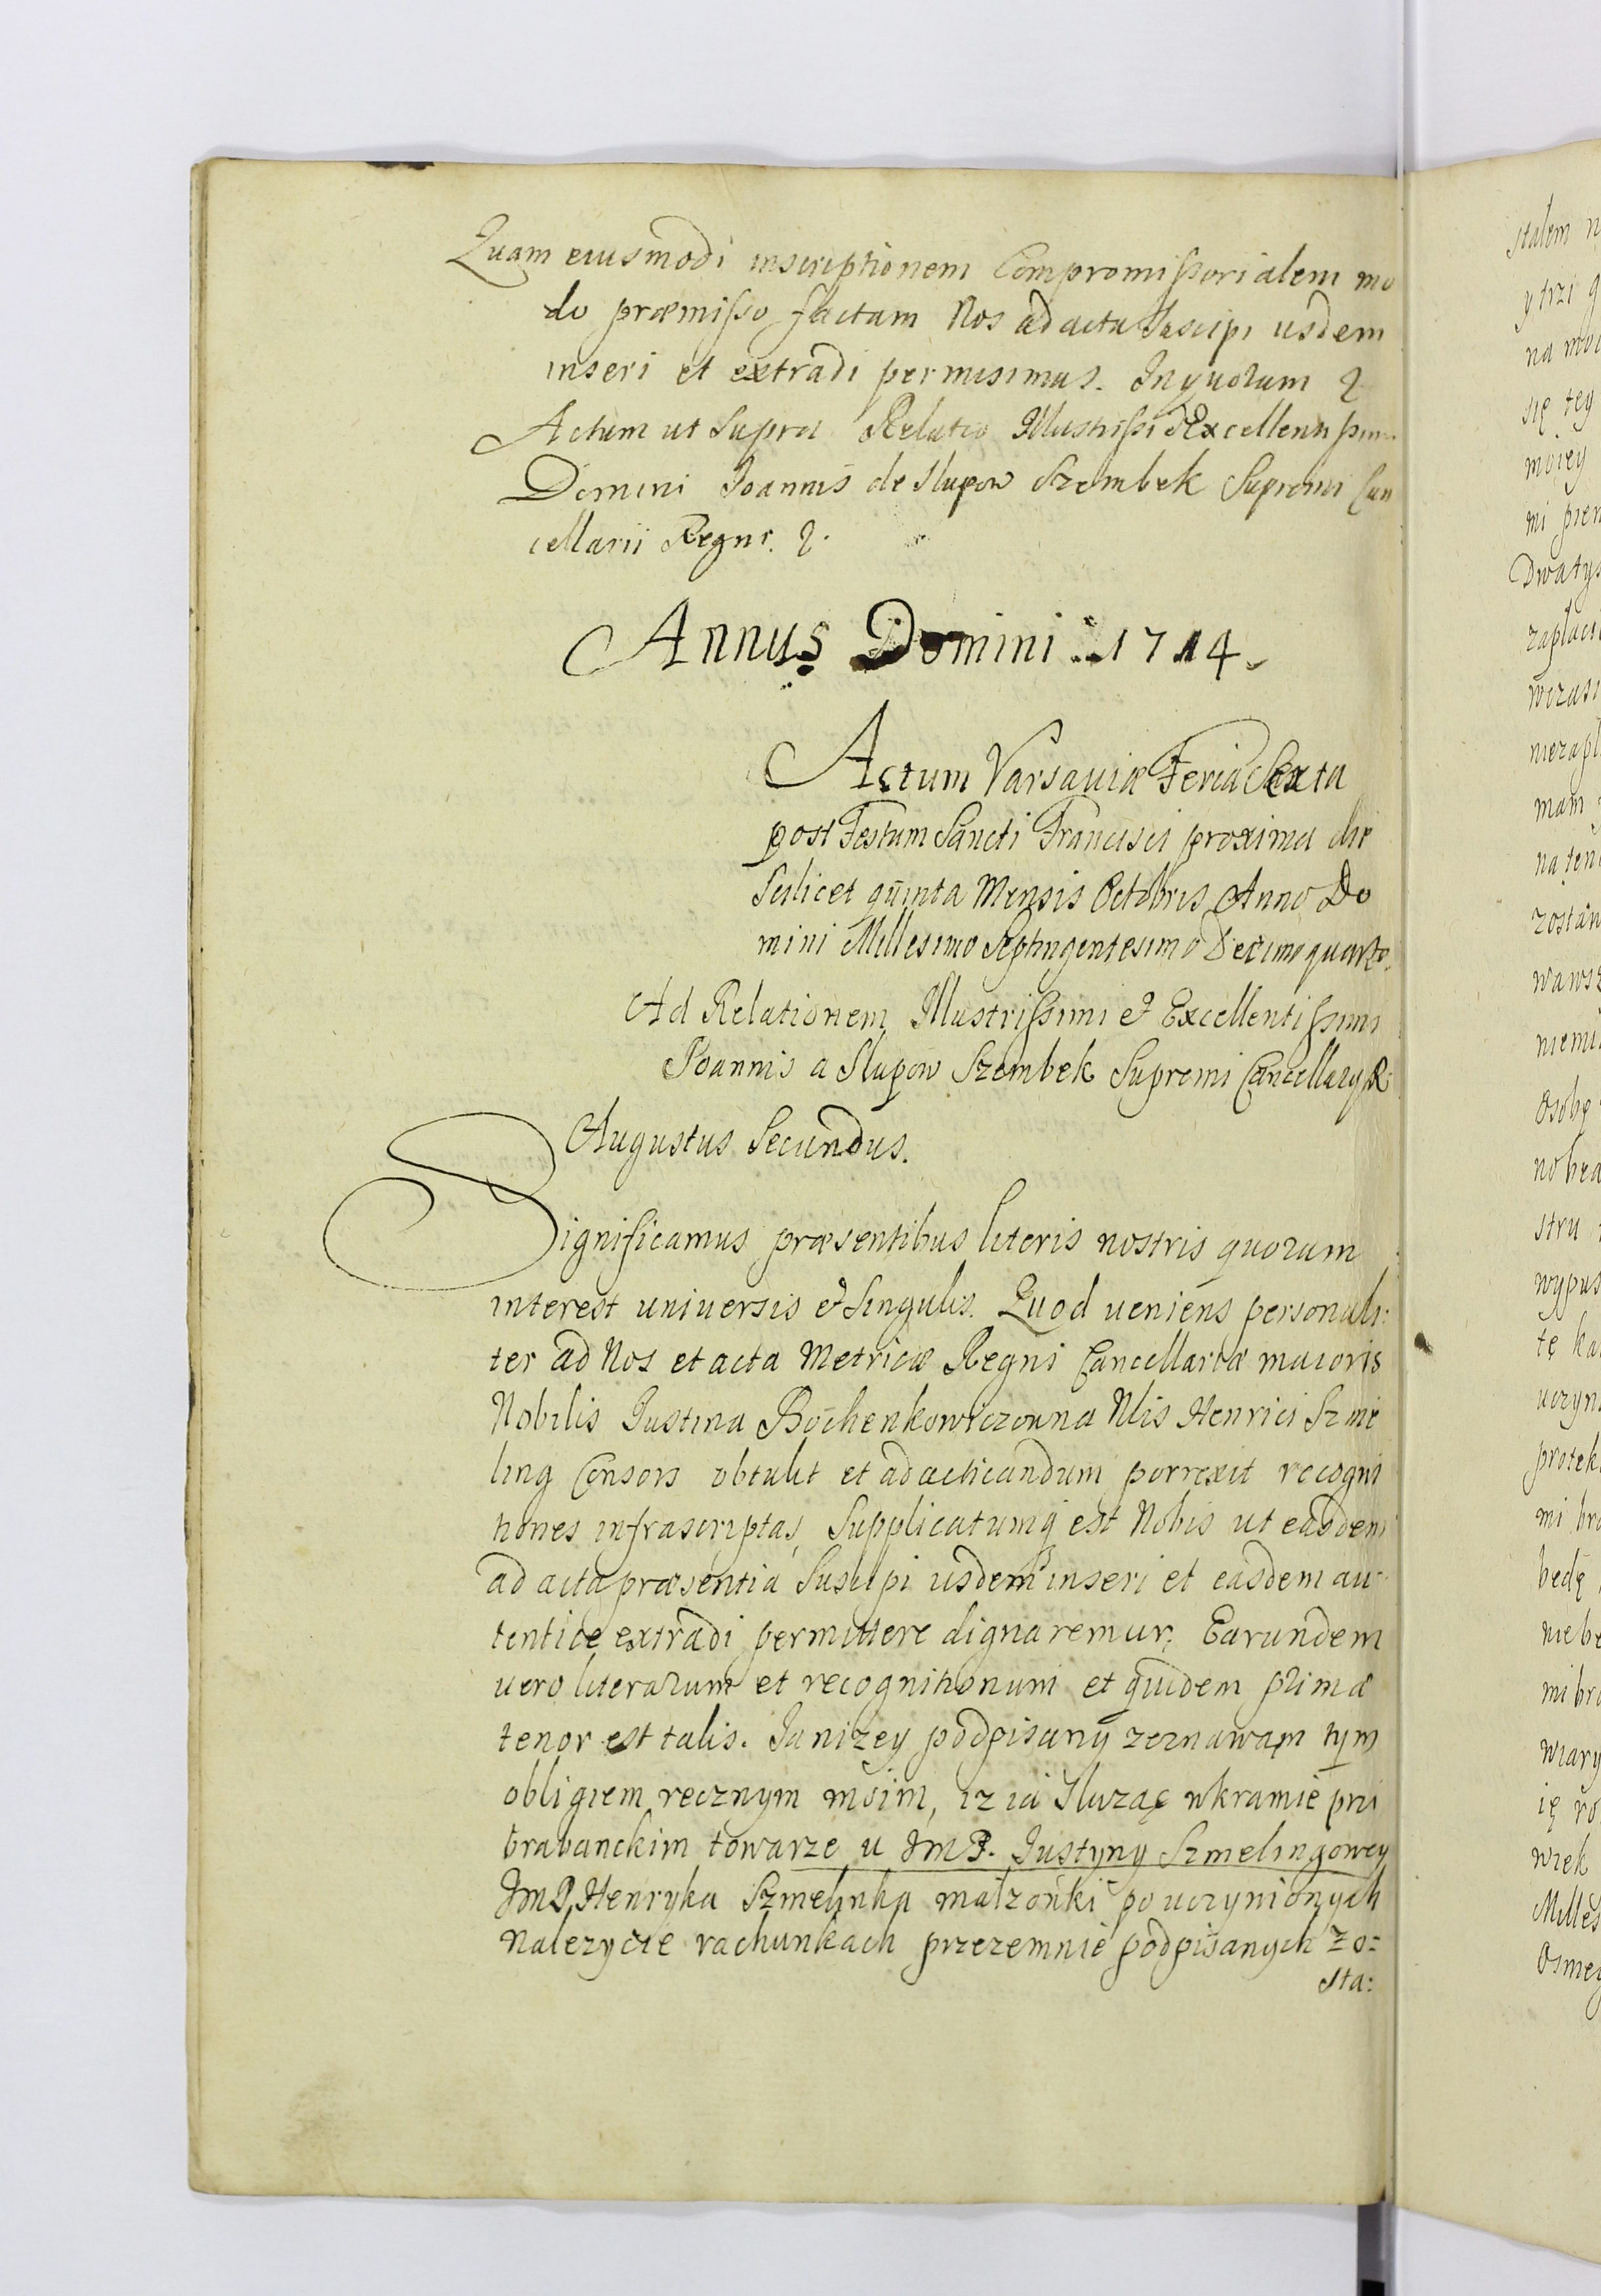 Quam eiusmodi inscriptionem Compromissorialem mo
do præmisso factam Nos ad acta suscipi iisdem
inseri et extradi permisimus. In quorum &
Actum ut Supra Relatio Illustrissi & Excellentissim.
Domini Joannis de Słupow Szembek Supremi Can
cellarii Regni. &.
Annus Domini 1714.
Actum Varsaviæ Feria Sexta
post Festum Sancti Francisci proxima die
Scilicet quinta Mensis Octobris Anno Do
mini Millesimo Septingentesimo Decimo quarto.
Ad Relationem Illustrissimi et Excellentissimi
Joannis a Słupow Szembek Supremi Cancellary R
Augustus Secundus.
Significamus præsentibus literis nostris quorum
interest universis et Singulis. Quod ueniens personali:
ter ad Nos et acta Metricæ Regni Cancellariæ maioris
Nobilis Justina Bochenkowiczowna Nlis Henrici Szme
ling Consors obtulit et ad acticandum porrexit recogni
tiones infrascriptas, Supplicatumq est Nobis ut easdem
ad acta præsentia Suscipi iisdem inseri et easdem au-
tentice extradi permittere dignaremur. Earundem
uero literarum et recognitionum et quidem primæ
tenor est talis. Ja nizey podpisany zeznawam tym
obligiem recznym moim, iz ia Służąc w kramie przi
brabanckim towarze u JmP. Justyny Szmelingowey
JmP. Henryka Szmelynka małzonki po uczynionych
Nalezycie rachunkach przezemnie podpisanych zo:
sta:
stalem
y trzi
się tey
moiey
Osobę
wypus
tę
bedę
wiary
wiek
Osmey